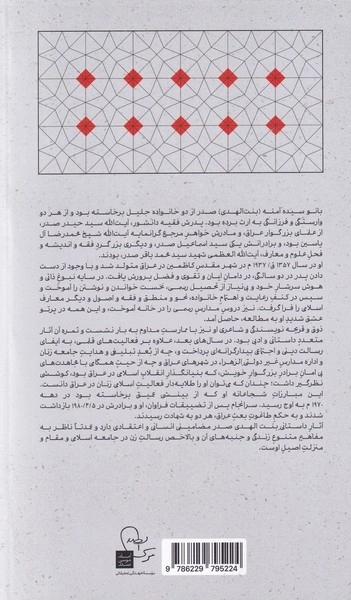 بانو سیده آمنه (بنت‌الهدی) صدر از دو خانواده جلیل برخاسته بود و از هر دو
وارستگی و فرزانگی به ارث برده بود. پدرش فقیه دانشور، آیت‌الله سید حیدر صدر،
از علمای بزرگوار عراق، و مادرش خواهر مرجع گرانمایه آیت‌الله شیخ محمدرضا آل
یاسین بود، و برادرانش یکی سید اسماعیل صدر، و دیگری بزرگ‌مرد فقه و اندیشه و
فحل علوم و معارف، آیت‌الله العظمی شهید سید محمد باقر صدر، بودند.
او در سال ۱۳۵۷ ق/ ۱۹۳۷ م در شهر مقدس کاظمین در عراق متولد شد و با وجود از دست
دادن پدر در دو سالگی، در دامان ایمان و تقوی و فضل پرورش یافت. در سایه نبوغ ذاتی و
هوش سرشار خود و بی‌نیاز از تحصیل رسمی، نخست خواندن و نوشتن را آموخت و
سپس در کنف رعایت و اهتمام خانواده، نحو و منطق و فقه و اصول و دیگر معارف
اسلامی را فرا گرفت. نیز دروس مدارس رسمی را در خانه آموخت، و این همه در پرتو
عشق شدید او به مطالعه، حاصل آمد.
ذوق و قریحه نویسندگی و شاعری او نیز با ممارست مداوم به بار نشست و ثمره آن آثار
متعدد داستانی و ادبی بود. در سال‌های بعد، علاوه بر فعالیت‌های قلمی، به ایفای
رسالت دینی و اجتماعی بیدارگرانه‌ای پرداخت و چه از راه تعلیم و تبلیغ و هدایت جامعه زنان
و اداره مدارس غیر دولتی الزهراء در شهرهای عراق و چه از حیث همگامی با مجاهدت‌های
بی‌امان برادر بزرگوار خویش، که بنیانگذار انقلاب اسلامی در عراق بود، کوششی
نظرگیر داشت؛ چندان که می‌توان او را طلایه‌دار فعالیت اسلامی زنان در عراق دانست.
این مبارزات شجاعانه او که از بینشی عمیق برخاسته بود در دهه
۱۹۷۰ م به اوج رسید. سرانجام پس از تضییقات فراوان، او و برادرش در ۱۹۸۰/۴/۵ بازداشت
شدند و به حکم طاغوت بعث عراق، هر دو به شهادت رسیدند.
آثار داستانی بنت الهدی صدر مضامینی انسانی و اعتقادی دارد و عمدتاً ناظر به
مفاهیم متنوع زندگی و جنبه‌های آن و بالاخص رسالت زن در جامعه اسلامی و مقام و
منزلت اصیل اوست.
امام
موسی
صدر
9 786229 795224